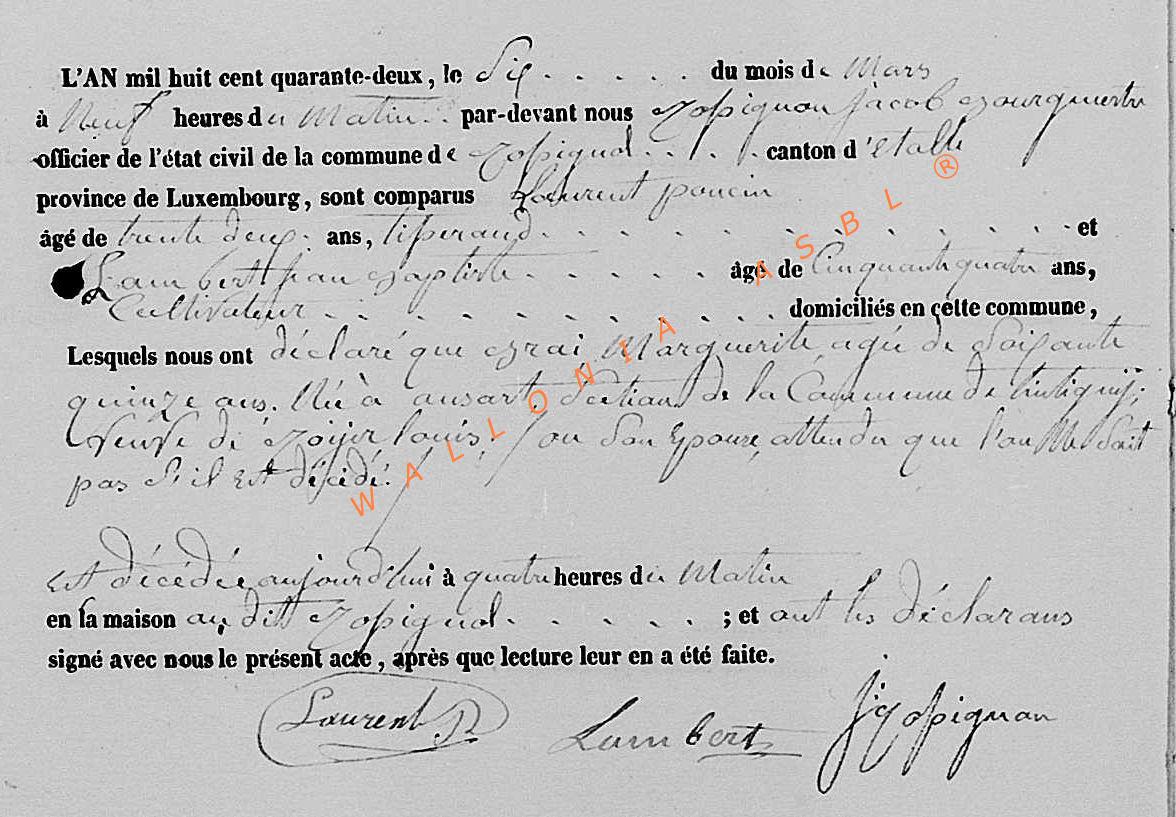 L'AN mil huit cent quarante-deux, le Six . . . . . du mois de Mars
à Neuf heures du Matin par-devant nous Rossignon Jacob Bourguemestre
officier de l'état civil de la commune de Rossignol . . . . canton d'Etalle
province de Luxembourg, sont comparus Laurent poncin
âgé de trente deux ans, tisserand . . . . . . . . . . . . et
Lambert jean Baptiste . . . . . âgé de Cinquante quatre ans,
Cultivateur . . . . . . . . . . domiciliés en cette commune,
Lesquels nous ont déclaré que Marguerite, agée de Soixante
quinze ans. Née à ansart, Section de la Commune de tintigny;
Veuve de louis. / ou Son Epouse, attendu que l'on Ne Sait
pas S'il Est décédé.
Est décédée aujourd'hui à quatre heures du Matin
en la maison au ditt Rossignol . . . . . ; et ont les déclarans
signé avec nous le présent acte, après que lecture leur en a été faite.
Laurent P Lambert J Rossignon
WALLONIA ASBL ®